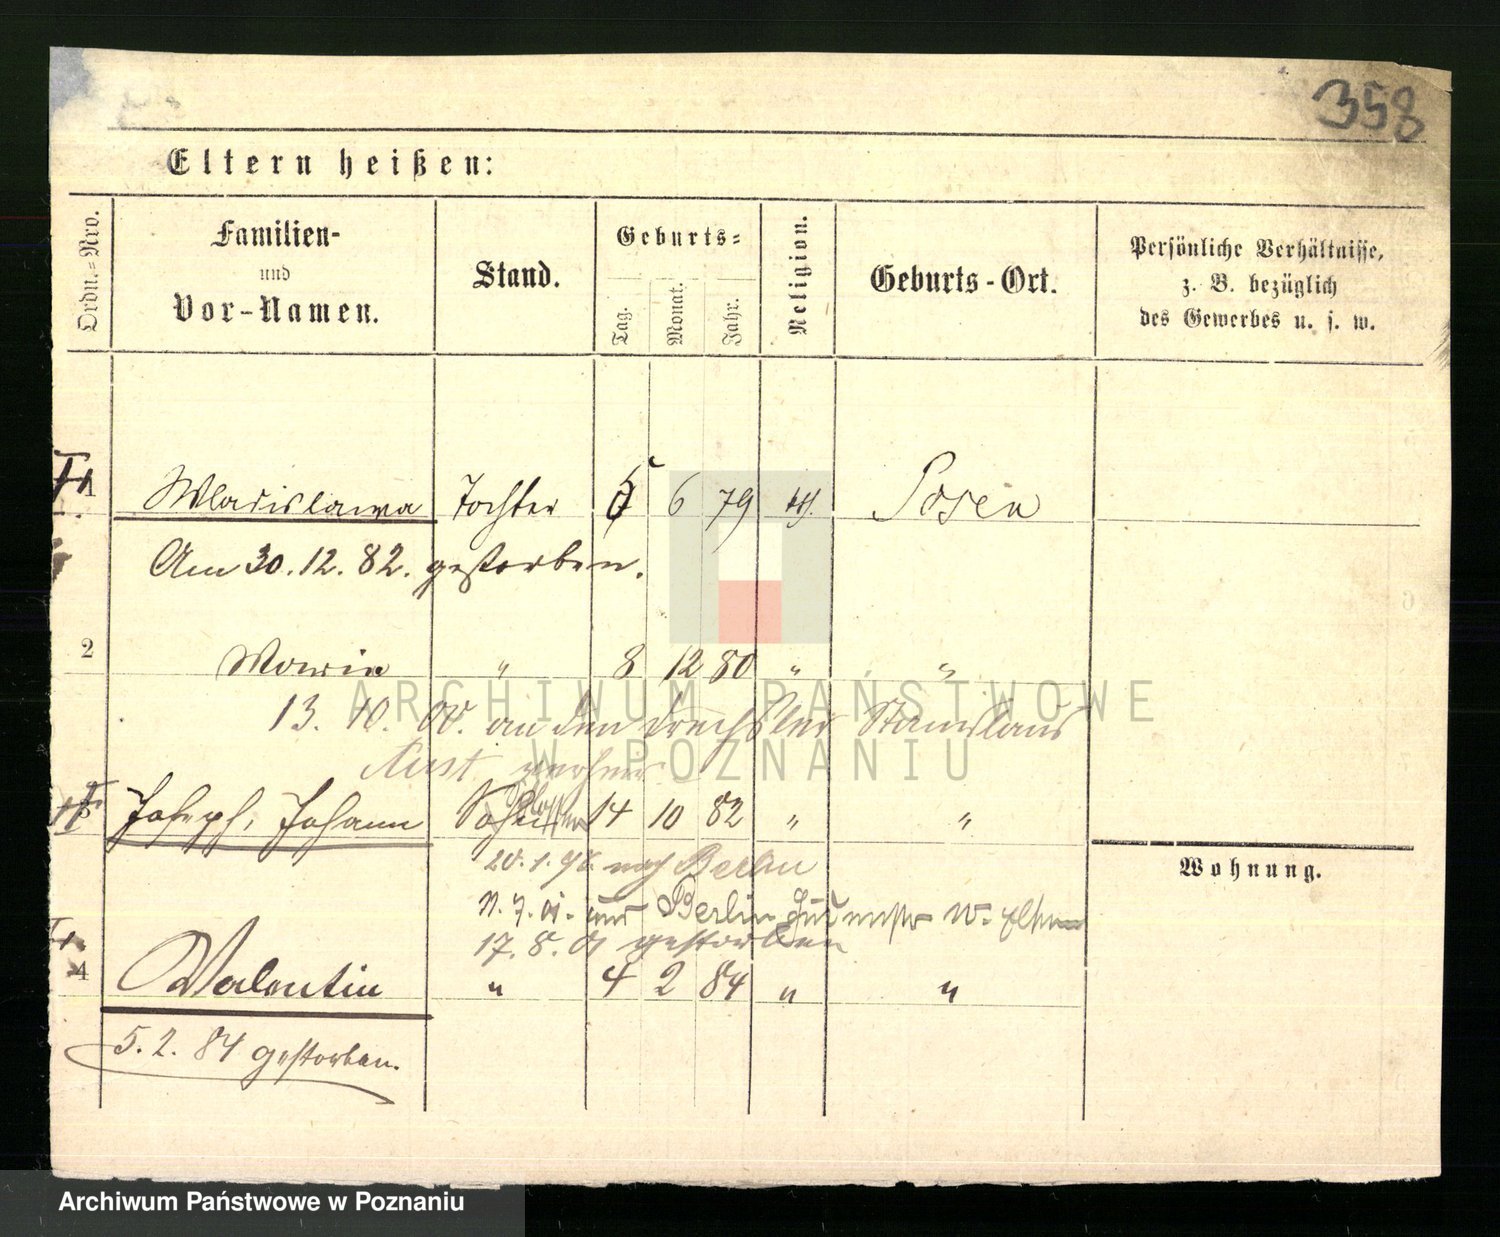 358
Eltern heißen:
Ordn.-Nro.
Familien-
und
Vor-Namen.
Stand.
Geburts-
Tag.
Monat.
Jahr.
Religion.
Geburts-Ort.
Persönliche Verhältnisse,
z. B. bezüglich
des Gewerbes u. s. w.
1 Wladislawa Tochter 6 79 Posen
Am 30. 12. 82. gestorben.
2 Maria " 8 12 80 " "
13. 10. 00. an den Drechsler Stanislaus
verh.
3 Joseph, Johann Sohn 14 10 82 " "
Wohnung.
20. 1. 98. nach Berlin
11. 7. 01. aus Berlin
17. 8. 01 gestorben
4 Valentin " 4 2 84 " "
5. 2. 84 gestorben.
ARCHIWUM PAŃSTWOWE
W POZNANIU
Archiwum Państwowe w Poznaniu